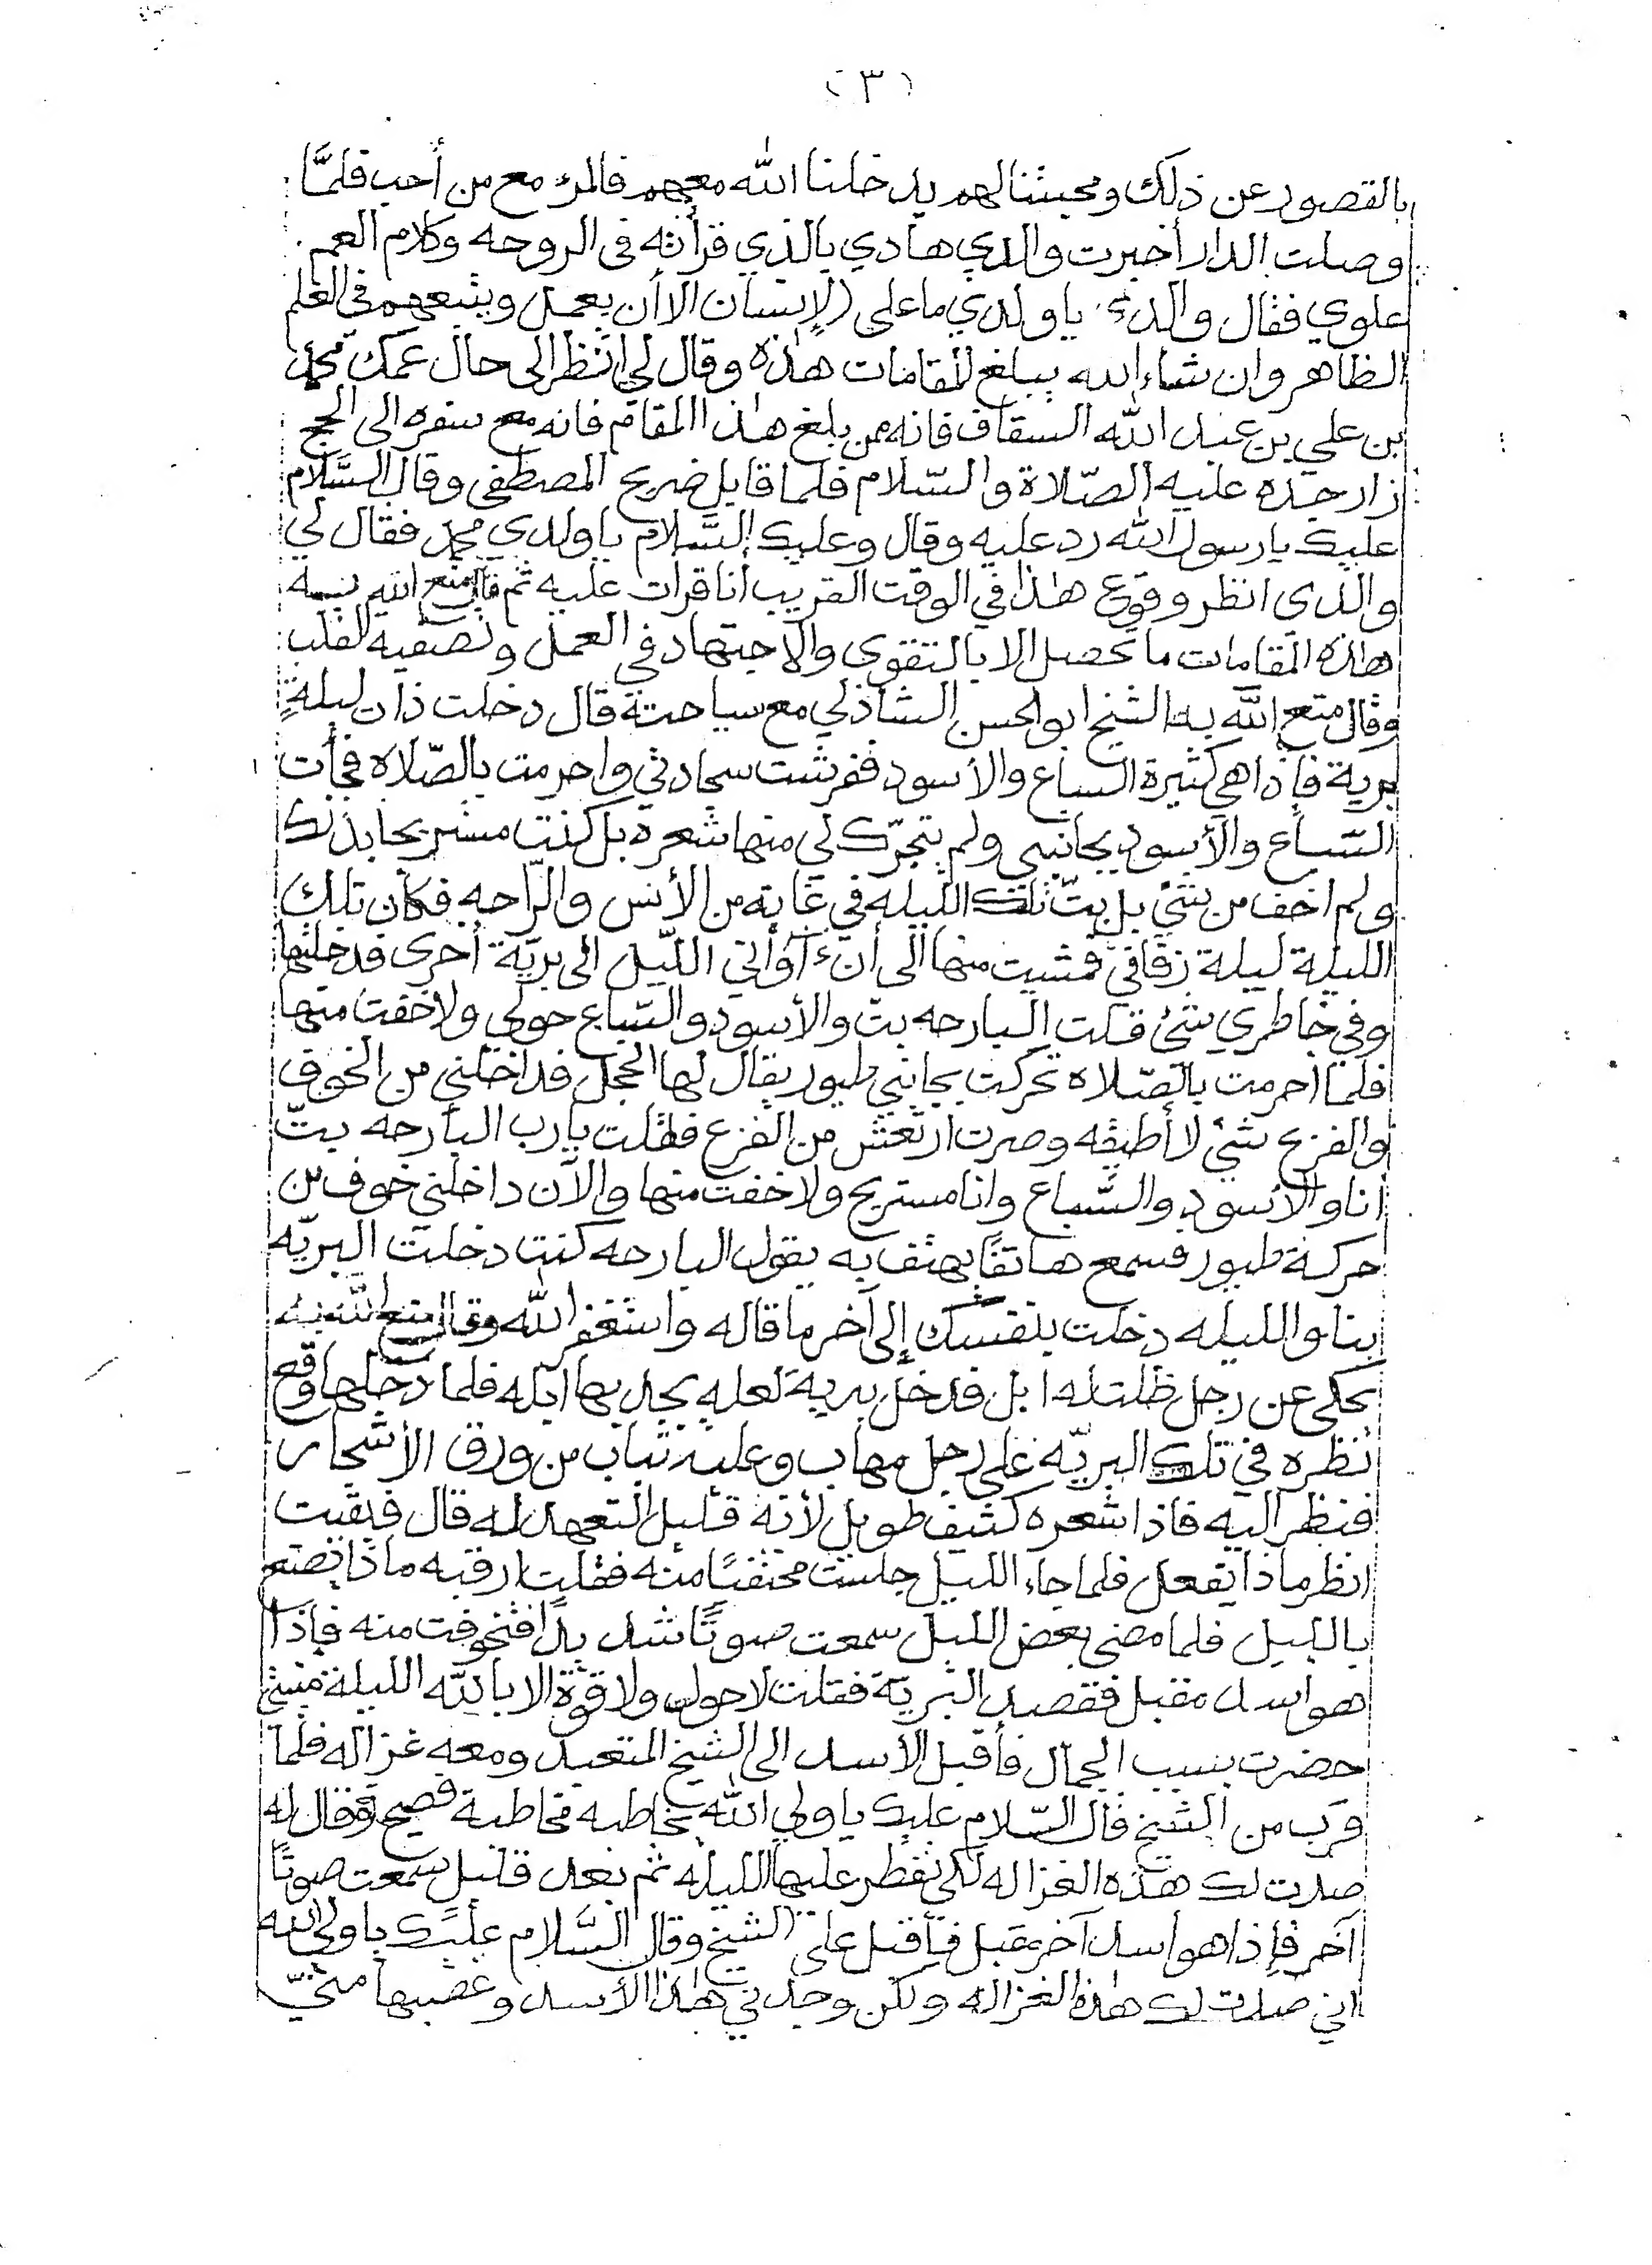 (٣)
بالقصور عن ذلك ومحبتنا لهم يدخلنا الله معهم فالمرء مع من أحب فلمَّا
وصلت الدار أخبرت والدي هادي بالذي قرأته في الروحه وكلام العم
علوي فقال والدي يا ولدي ما على الإنسان الا أن يعمل ويتبعهم في العلم
الظاهر وان شاء الله يبلغ المقامات هذه وقال لي انظر الى حال عمك محمد
بن علي بن عبد الله السقاف فانه ممن بلغ هذا المقام فانه مع سفره الى الحج
زار جده عليه الصّلاة والسّلام فلما قابل ضريح المصطفى وقال السَّلام
عليك يا رسول الله رد عليه وقال وعليك السَّلام يا ولدي محمد فقال لي
والدي انظر وقوع هذا في الوقت القريب أنا قرأت عليه ثم قال متع الله به
هذه المقامات ما تحصل الا بالتقوى والاجتهاد في العمل وتصفية القلب
وقال متع الله به الشيخ ابو الحسن الشاذلي مع سياحته قال دخلت ذات ليلةٍ
برية فإذا هي كثيرة السباع والأسود ففرشت سجادتي واحرمت بالصّلاه فجأت
السّباع والأسود بجانبي ولم يتحرّك لي منها شعره بل كنت مستريحا بذلك
ولم اخف من شيَ بل بتّ تلك الليله في غايه من الأنس والرّاحه فكأن تلك
الليلة ليلة زفافي فمشيت منها الى أن آواني اللّيل الى بريّة أخرى فدخلتها
وفي خاطري شئ قلت البارحه بت والأسود والسّباع حولي ولا خفت منها
فلمّا احرمت بالصّلاه تحركت بجانبي طيور يقال لها الحجل فداخلني من الخوف
والفزع شئ لا أطيقه وصرت ارتعش من الفزع فقلت يا رب البارحه بتّ
أنا والأسود والسَّباع وانا مستريح ولا خفت منها والآن داخلني خوف من
حركة طيور فسمع هاتفًا يهتف به يقول البارحه كنت دخلت البريّه
بنا والليله دخلت بنفسك إلى آخر ما قاله واستغفر الله وقال متع الله به
يحكى عن رجل ظلت له ابل فدخل برية لعله يجد بها ابله فلما دخلها وقع
نظره في تلك البريّه على رجل مهاب وعليه ثياب من ورق الأشجار
فنظر اليه فاذا شعره كثيف طويل لأنه قليل التعهد له قال فبقيت
انظر ماذا يفعل فلما جاء الليل جلست مختفيًا منه فقلت ارقبه ماذا يصنع
بالليل فلما مضى بعض الليل سمعت صوتًا شديدًا فتخوفت منه فإذا
هو اسد مقبل فقصد البريّة فقلت لا حول ولا قوة الا بالله الليلة
حضرت بسبب الجمال فأقبل الأسد الى الشيخ المتعبد ومعه غزاله فلما
قرب من الشيخ قال السّلام عليك يا ولي الله يخاطبه مخاطبة فصيح وقال له
صدت لك هذه الغزاله لكي تفطر عليها الليله ثم بعد قليل سمعت صوتًا
آخر فإذا هو أسد آخر مقبل فأقبل على الشيخ وقال السَّلام عليك يا ولي الله
اني صدت لك هذه الغزاله ولكن وجدني هذا الأسد وغصبها منّيّ